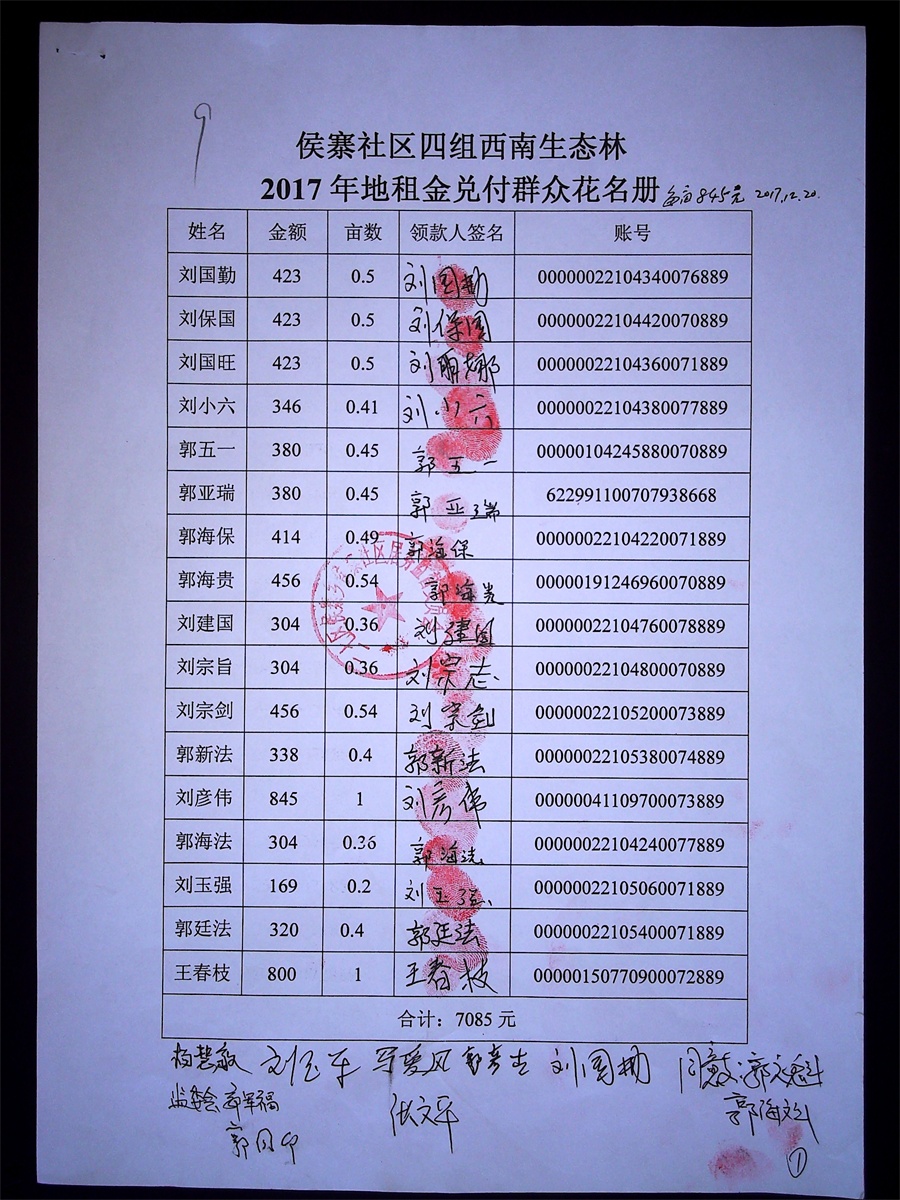 9
侯寨社区四组西南生态林
2017年地租金兑付群众花名册 每亩845元 2017.12.20.
姓名 金额 亩数 领款人签名 账号
刘国勤 423 0.5 刘国勤 00000022104340076889
刘保国 423 0.5 刘保国 00000022104420070889
刘国旺 423 0.5 刘丽娜 00000022104360071889
刘小六 346 0.41 刘小六 00000022104380077889
郭五一 380 0.45 郭五一 00000104245880070889
郭亚瑞 380 0.45 郭亚瑞 622991100707938668
郭海保 414 0.49 郭海保 00000022104220071889
郭海贵 456 0.54 郭海贵 00000191246960070889
刘建国 304 0.36 刘建国 00000022104760078889
刘宗旨 304 0.36 刘宗志 00000022104800070889
刘宗剑 456 0.54 刘宗剑 00000022105200073889
郭新法 338 0.4 郭新法 00000022105380074889
刘彦伟 845 1 刘彦伟 00000041109700073889
郭海法 304 0.36 郭海法 00000022104240077889
刘玉强 169 0.2 刘玉强 00000022105060071889
郭廷法 320 0.4 郭廷法 00000022105400071889
王春枝 800 1 王春枝 00000150770900072889
合计：7085 元
杨慧敏 刘国勤
监委会
张文平 郭海
①